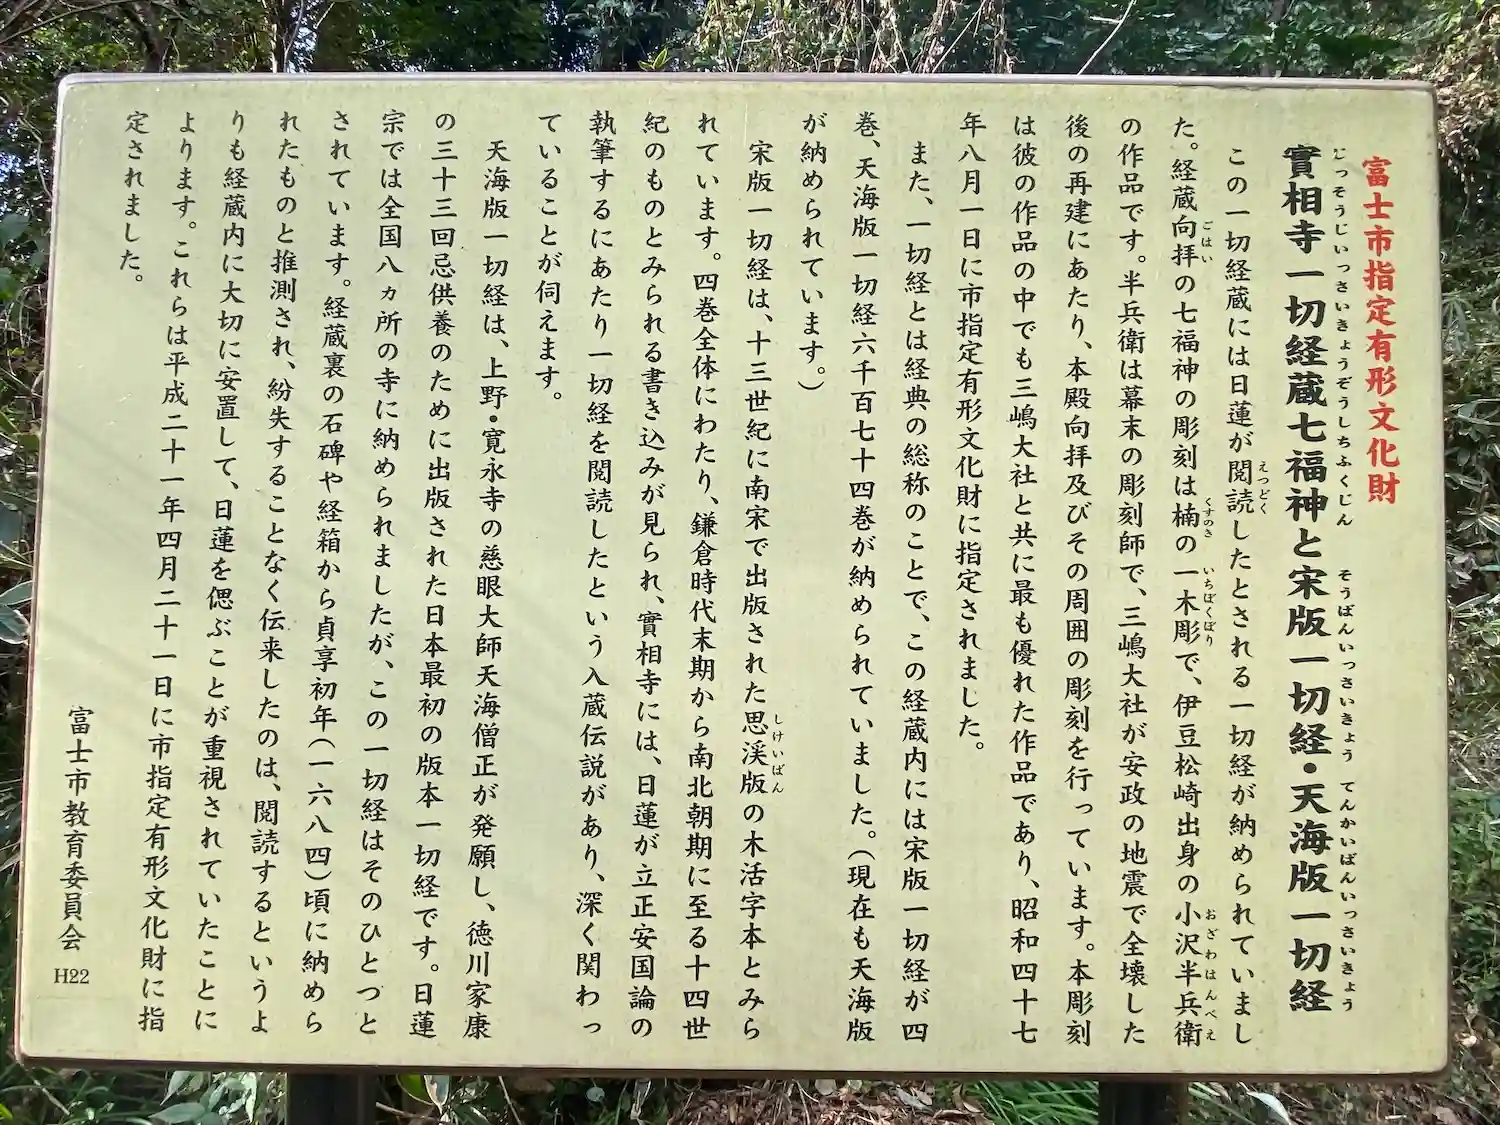 富士市指定有形文化財
じっそうじいっさいきょうぞうしちふくじん そうばんいっさいきょう てんかいばんいっさいきょう
實相寺一切経蔵七福神と宋版一切経・天海版一切経
えつどく
この一切経蔵には日蓮が閲読したとされる一切経が納められていまし
ごはい くすのき いちぼくぼり おざわはんべえ
た。経蔵向拝の七福神の彫刻は楠の一木彫で、伊豆松崎出身の小沢半兵衛
の作品です。半兵衛は幕末の彫刻師で、三嶋大社が安政の地震で全壊した
後の再建にあたり、本殿向拝及びその周囲の彫刻を行っています。本彫刻
は彼の作品の中でも三嶋大社と共に最も優れた作品であり、昭和四十七
年八月一日に市指定有形文化財に指定されました。
また、一切経とは経典の総称のことで、この経蔵内には宋版一切経が四
巻、天海版一切経六千百七十四巻が納められていました。(現在も天海版
が納められています。)
しけいばん
宋版一切経は、十三世紀に南宋で出版された思渓版の木活字本とみら
れています。四巻全体にわたり、鎌倉時代末期から南北朝期に至る十四世
紀のものとみられる書き込みが見られ、實相寺には、日蓮が立正安国論の
執筆するにあたり一切経を閲読したという入蔵伝説があり、深く関わっ
ていることが伺えます。
天海版一切経は、上野・寛永寺の慈眼大師天海僧正が発願し、徳川家康
の三十三回忌供養のために出版された日本最初の版本一切経です。日蓮
宗では全国八ヵ所の寺に納められましたが、この一切経はそのひとつと
されています。経蔵裏の石碑や経箱から貞享初年(一六八四)頃に納めら
れたものと推測され、紛失することなく伝来したのは、閲読するというよ
りも経蔵内に大切に安置して、日蓮を偲ぶことが重視されていたことに
よります。これらは平成二十一年四月二十一日に市指定有形文化財に指
定されました。
富士市教育委員会 H22